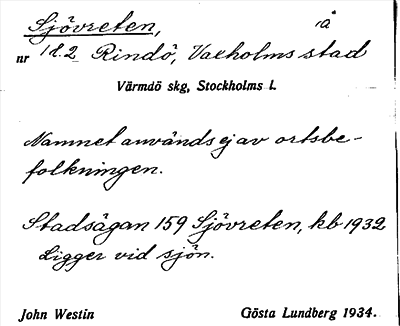 Sjövreten, på
nr 18.2 Rindö, Vaxholms stad
Värmdö skg, Stockholms l.
Namnet användes ej av ortsbe-
folkningen.
Stadsägan 159 Sjövreten, kb 1932
Ligger vid sjön.
John Westin Gösta Lundberg 1934.